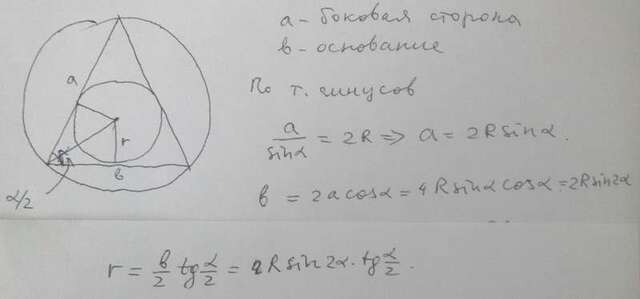 a - боковая сторона
b - основание
По т. синусов
a/sinα = 2R => a = 2R sinα.
b = 2a cosα = 4R sinα cosα = 2R sin2α
a
r
b
α/2
r = b/2 tg α/2 = R sin 2α · tg α/2.